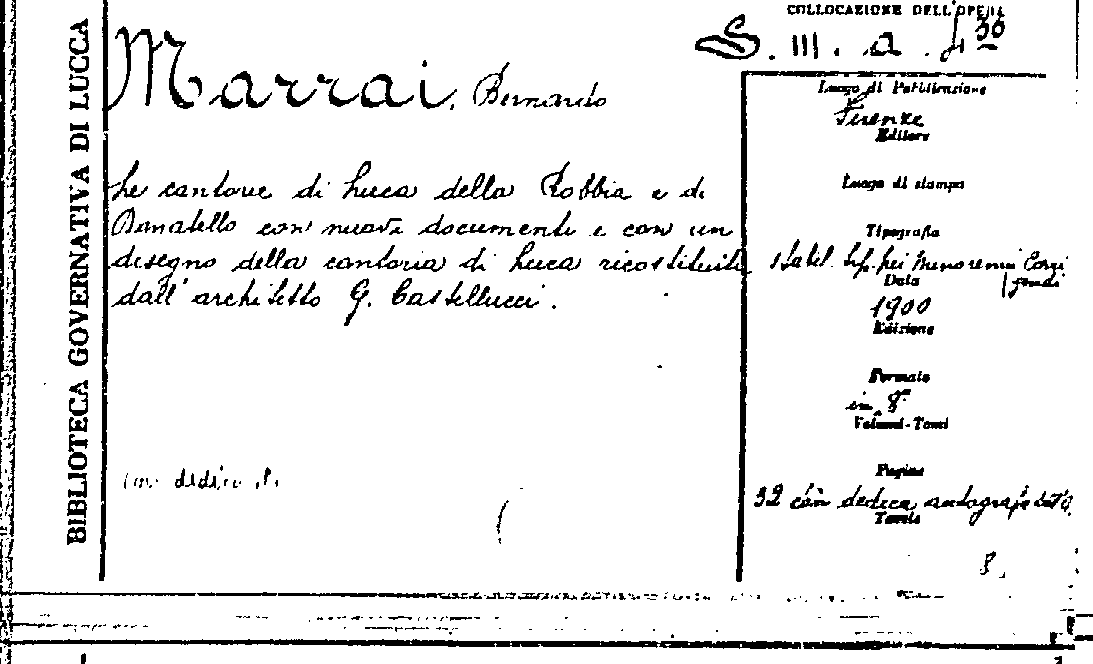 BIBLIOTECA GOVERNATIVA DI LUCCA
COLLOCAZIONE DELL'OPERA
S. III. a.
Marrai, Bernardo
Le cantorie di Luca della Robbia e di
Donatello con nuovi documenti e con un
disegno della cantoria di Luca ricostituita
dall'architetto G. Castellucci.
Luogo di Pubblicazione
Firenze
Editore
Luogo di stampa
Tipografia
Stabel. tip. pei Minorenni Corri
gendi
Data
1900
Edizione
Formato
in 8°
Volumi-Tomi
Pagine
32 con dedica autografa
Tavole